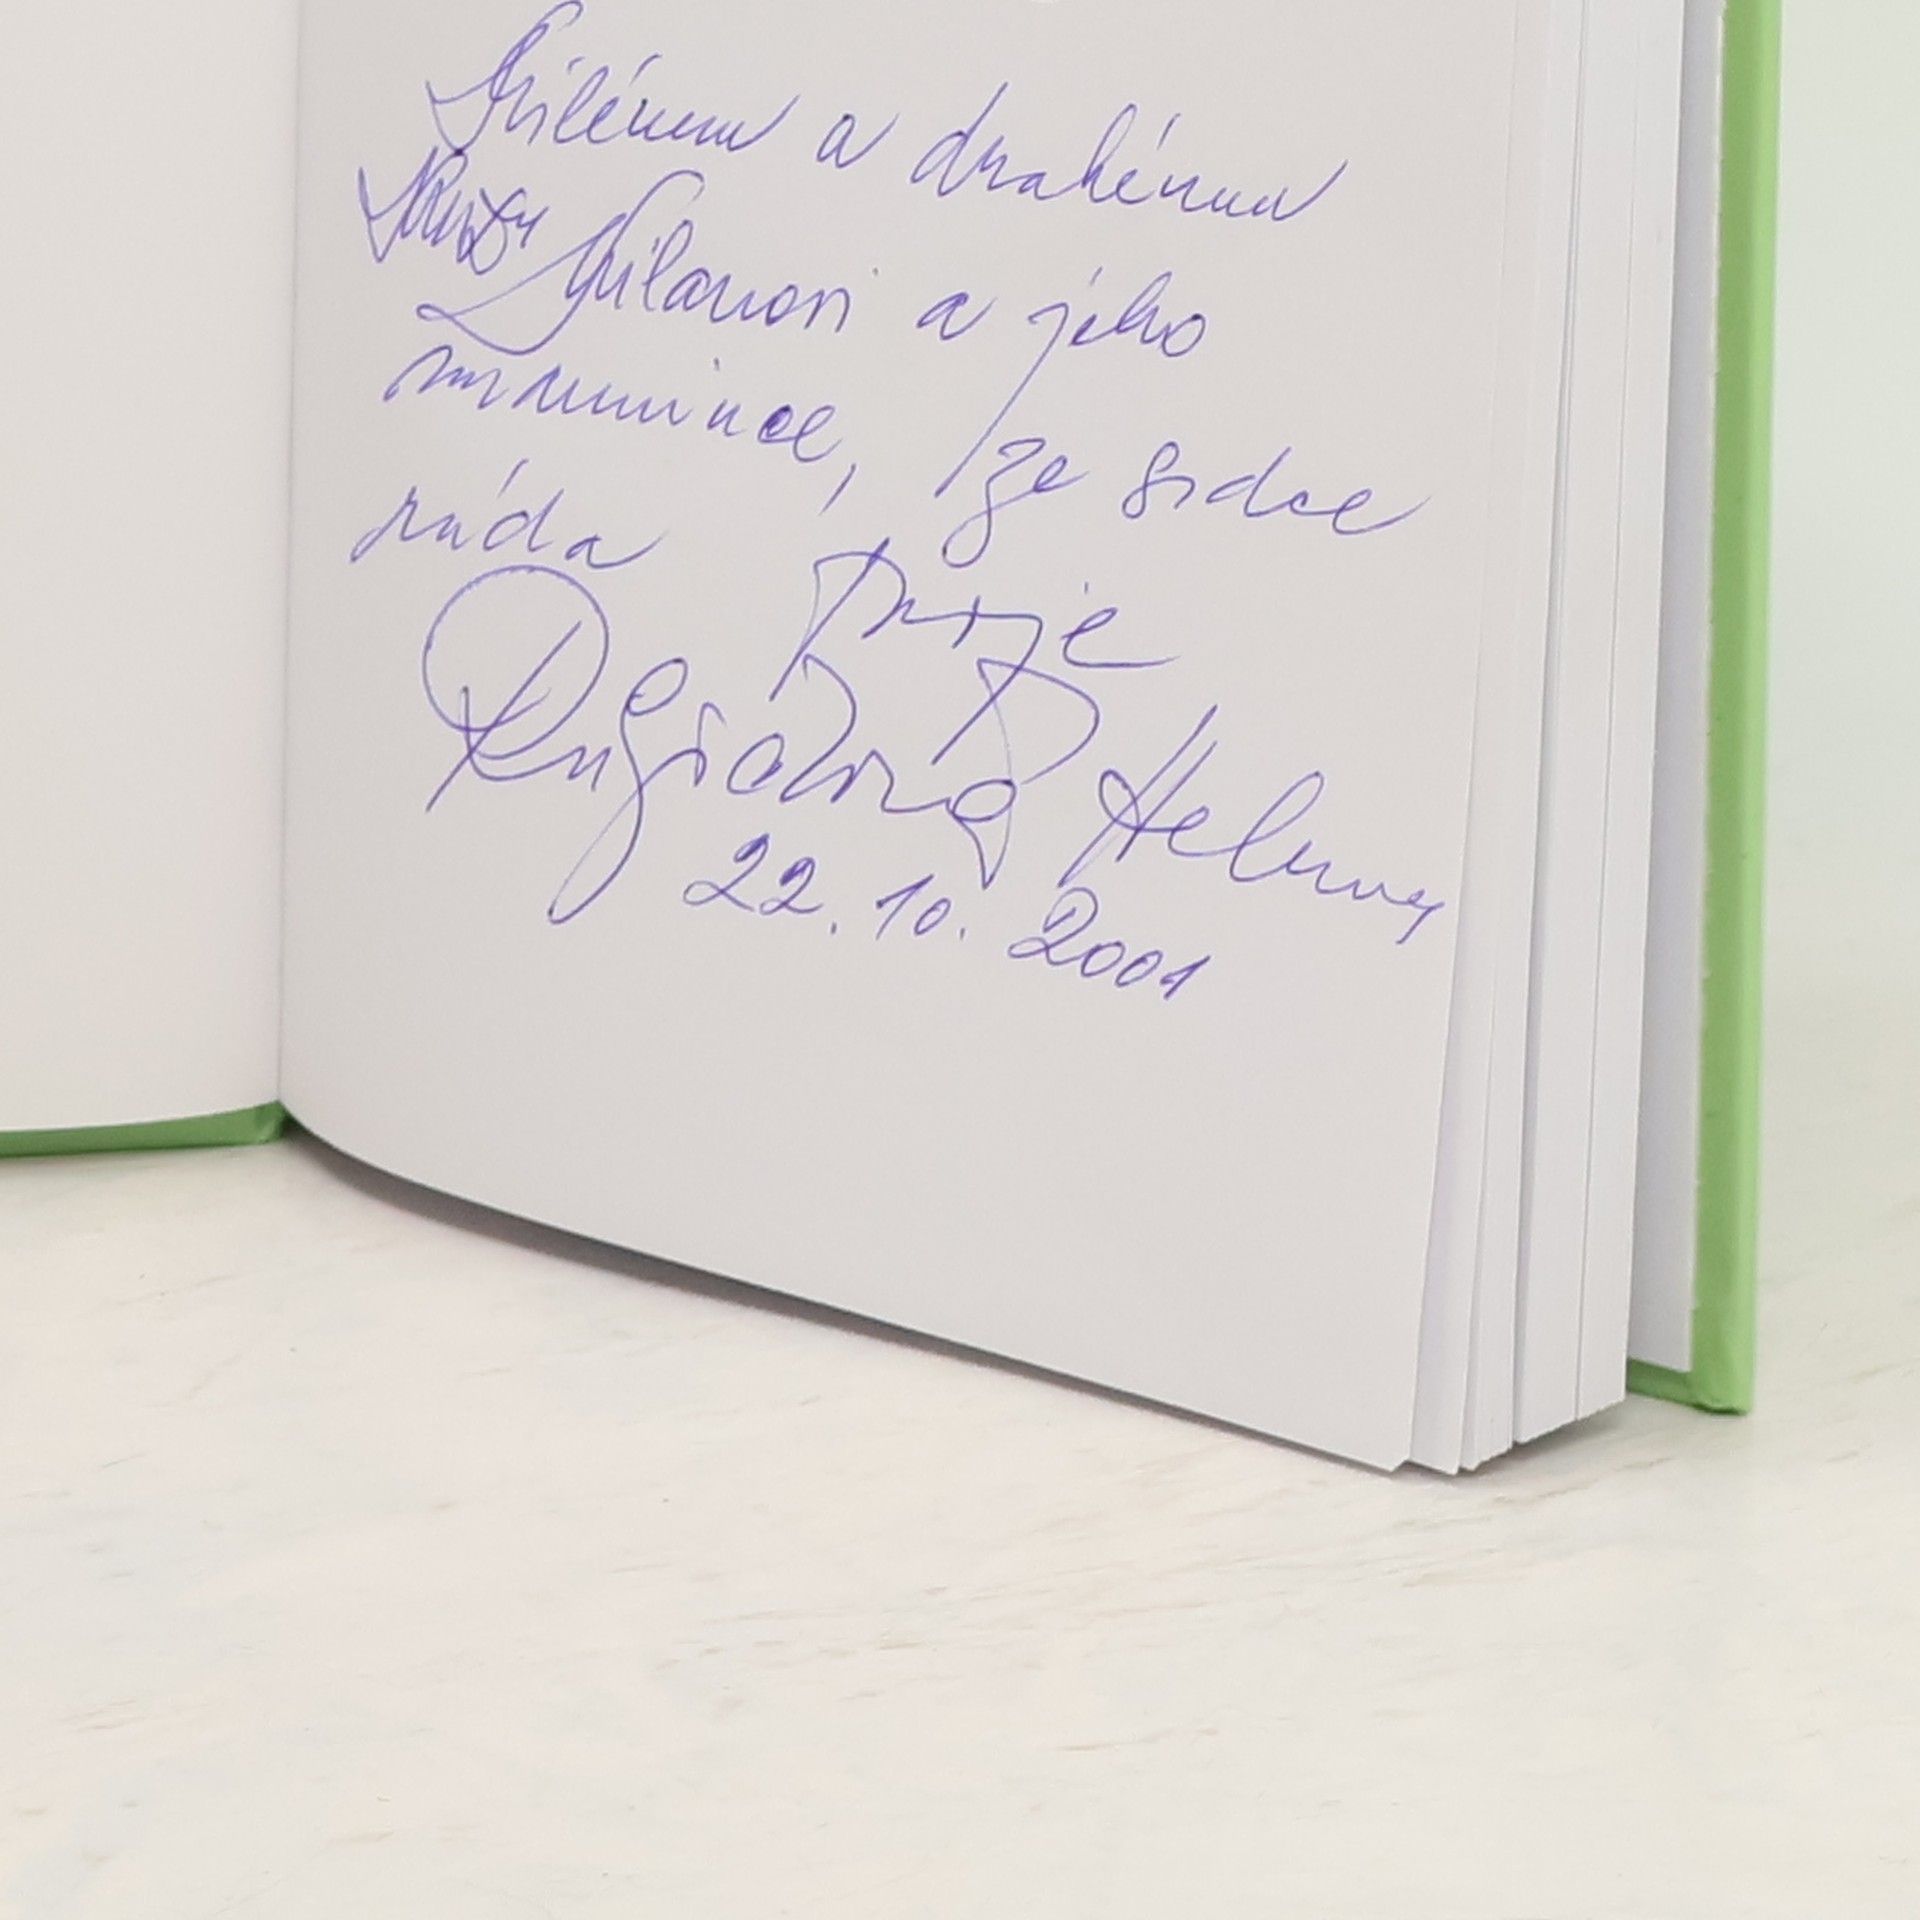 Milému a drahému
Milanovi a jeho
mamince, ze srdce
ráda
Helena
22. 10. 2001